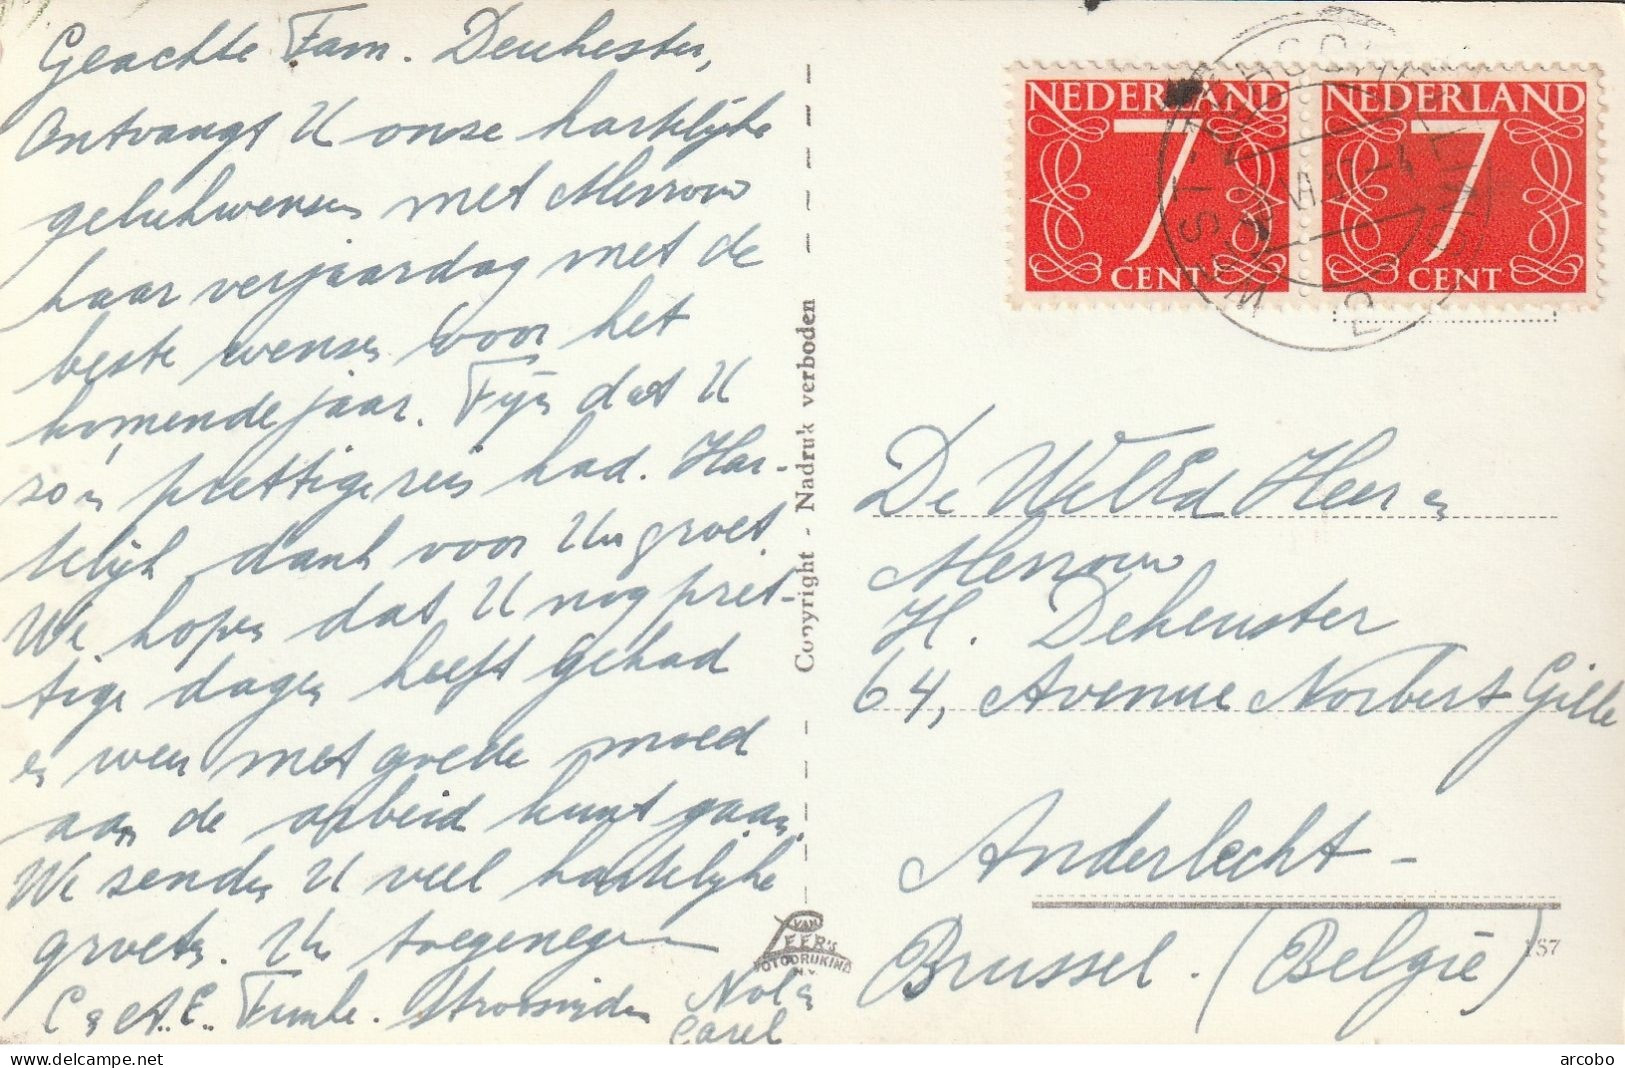 Geachte Fam. Deuhester,
Ontvangt U onze hartelijke
gelukwensen met Mevrouw
haar verjaardag met de
beste wensen voor het
komende jaar. Fijn dat U
zo'n prettige reis had. Har-
telijk dank voor Uw groet.
We hopen dat U nog pret-
tige dagen heeft gehad
en weer met goede moed
aan de arbeid kunt gaan.
We zenden U veel hartelijke
groeten. Uw toegenegen
C en A.E. Funke. Stroosnijder
Nol en
Carel
Copyright - Nadruk verboden
VAN
LEER'S
FOTODRUKIND
N.V.
NEDERLAND
7
CENT
NEDERLAND
7
CENT
De WelEd Heer en
Mevrouw
H. Dekeuster
64, Avenue Norbert Gille
Anderlecht -
Brussel. (België)
187
delcampe.net
arcobo